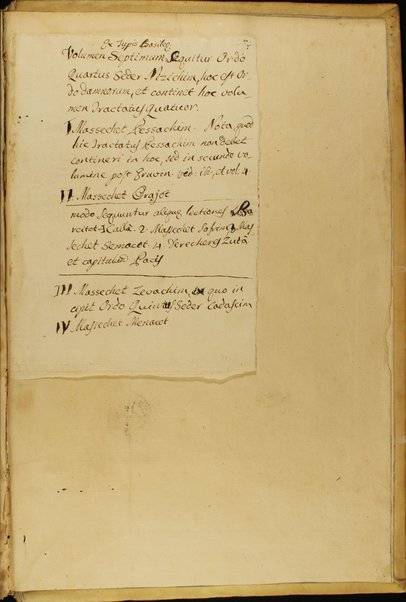 Ex Typis Basileę
Volumen Septimum Sequitur Ordo
Quartus Seder Nizichim, hoc est Or-
do damnorum, et continet hoc volu-
men Tractatus Quatuor.
I Massechet Pessachim. Nota, quod
hic Tractatus Pessachim non debet
contineri in hoc, sed in secundo vo-
lumine post Eruvin. vid: ibi, et vol. 4.
II Massechet Orajot
modo sequuntur aliquę lectiones
1. Calà. 2. Massechet Sofrim 3. Mas
sechet Semacot. 4. Derecheres Zutà
et capitulum Pacis
III Massechet Zevachim, in quo in
cipit Ordo Quintus Seder Cadascim
IV Massechet Menacot